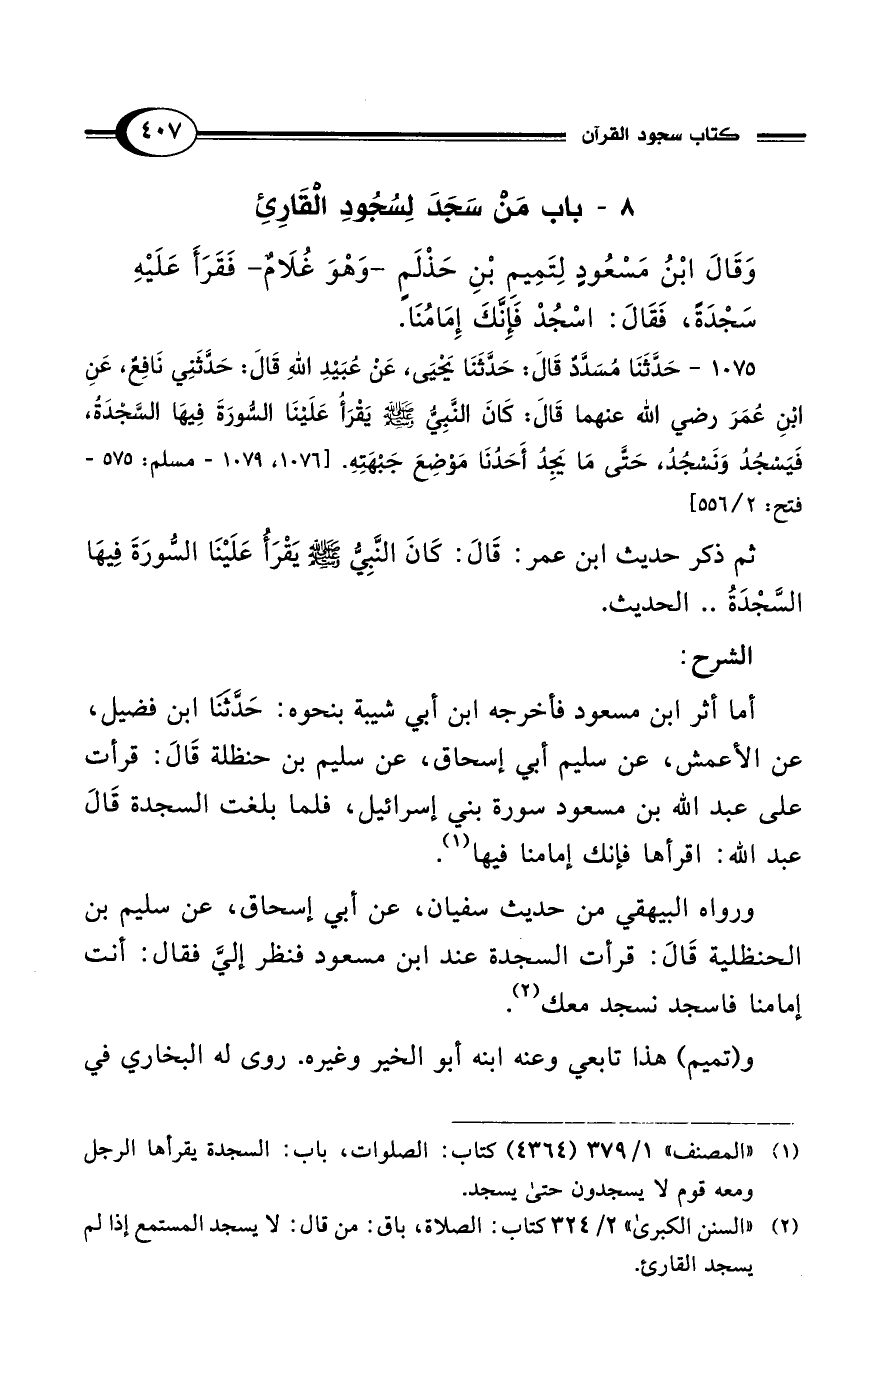 كتاب سجود القرآن ٤٠٧
٨ - باب مَنْ سَجَدَ لِسُجُودِ الْقَارِئِ
وَقَالَ ابْنُ مَسْعُودٍ لِتَمِيمِ بْنِ حَذْلَمٍ -وَهْوَ غُلَامٌ- فَقَرَأَ عَلَيْهِ
سَجْدَةً، فَقَالَ: اسْجُدْ فَإِنَّكَ إِمَامُنَا.
١٠٧٥ - حَدَّثَنَا مُسَدَّدٌ قَالَ: حَدَّثَنَا يَحْيَى، عَنْ عُبَيْدِ اللهِ قَالَ: حَدَّثَنِي نَافِعٌ، عَنِ
ابْنِ عُمَرَ رضي الله عنهما قَالَ: كَانَ النَّبِيُّ ﷺ يَقْرَأُ عَلَيْنَا السُّورَةَ فِيهَا السَّجْدَةُ،
فَيَسْجُدُ وَنَسْجُدُ، حَتَّى مَا يَجِدُ أَحَدُنَا مَوْضِعَ جَبْهَتِهِ. [١٠٧٦، ١٠٧٩ - مسلم: ٥٧٥ -
فتح: ٢/ ٥٥٦]
ثم ذكر حديث ابن عمر: قَالَ: كَانَ النَّبِيُّ ﷺ يَقْرَأُ عَلَيْنَا السُّورَةَ فِيهَا
السَّجْدَةُ .. الحديث.
الشرح:
أما أثر ابن مسعود فأخرجه ابن أبي شيبة بنحوه: حَدَّثَنَا ابن فضيل،
عن الأعمش، عن سليم أبي إسحاق، عن سليم بن حنظلة قَالَ: قرأت
على عبد الله بن مسعود سورة بني إسرائيل، فلما بلغت السجدة قَالَ
عبد الله: اقرأها فإنك إمامنا فيها(١).
ورواه البيهقي من حديث سفيان، عن أبي إسحاق، عن سليم بن
الحنظلية قَالَ: قرأت السجدة عند ابن مسعود فنظر إليَّ فقال: أنت
إمامنا فاسجد نسجد معك(٢).
و(تميم) هذا تابعي وعنه ابنه أبو الخير وغيره. روى له البخاري في
(١) «المصنف» ١/ ٣٧٩ (٤٣٦٤) كتاب: الصلوات، باب: السجدة يقرأها الرجل
ومعه قوم لا يسجدون حتىٰ يسجد.
(٢) «السنن الكبرىٰ» ٢/ ٣٢٤ كتاب: الصلاة، باق: من قال: لا يسجد المستمع إذا لم
يسجد القارئ.